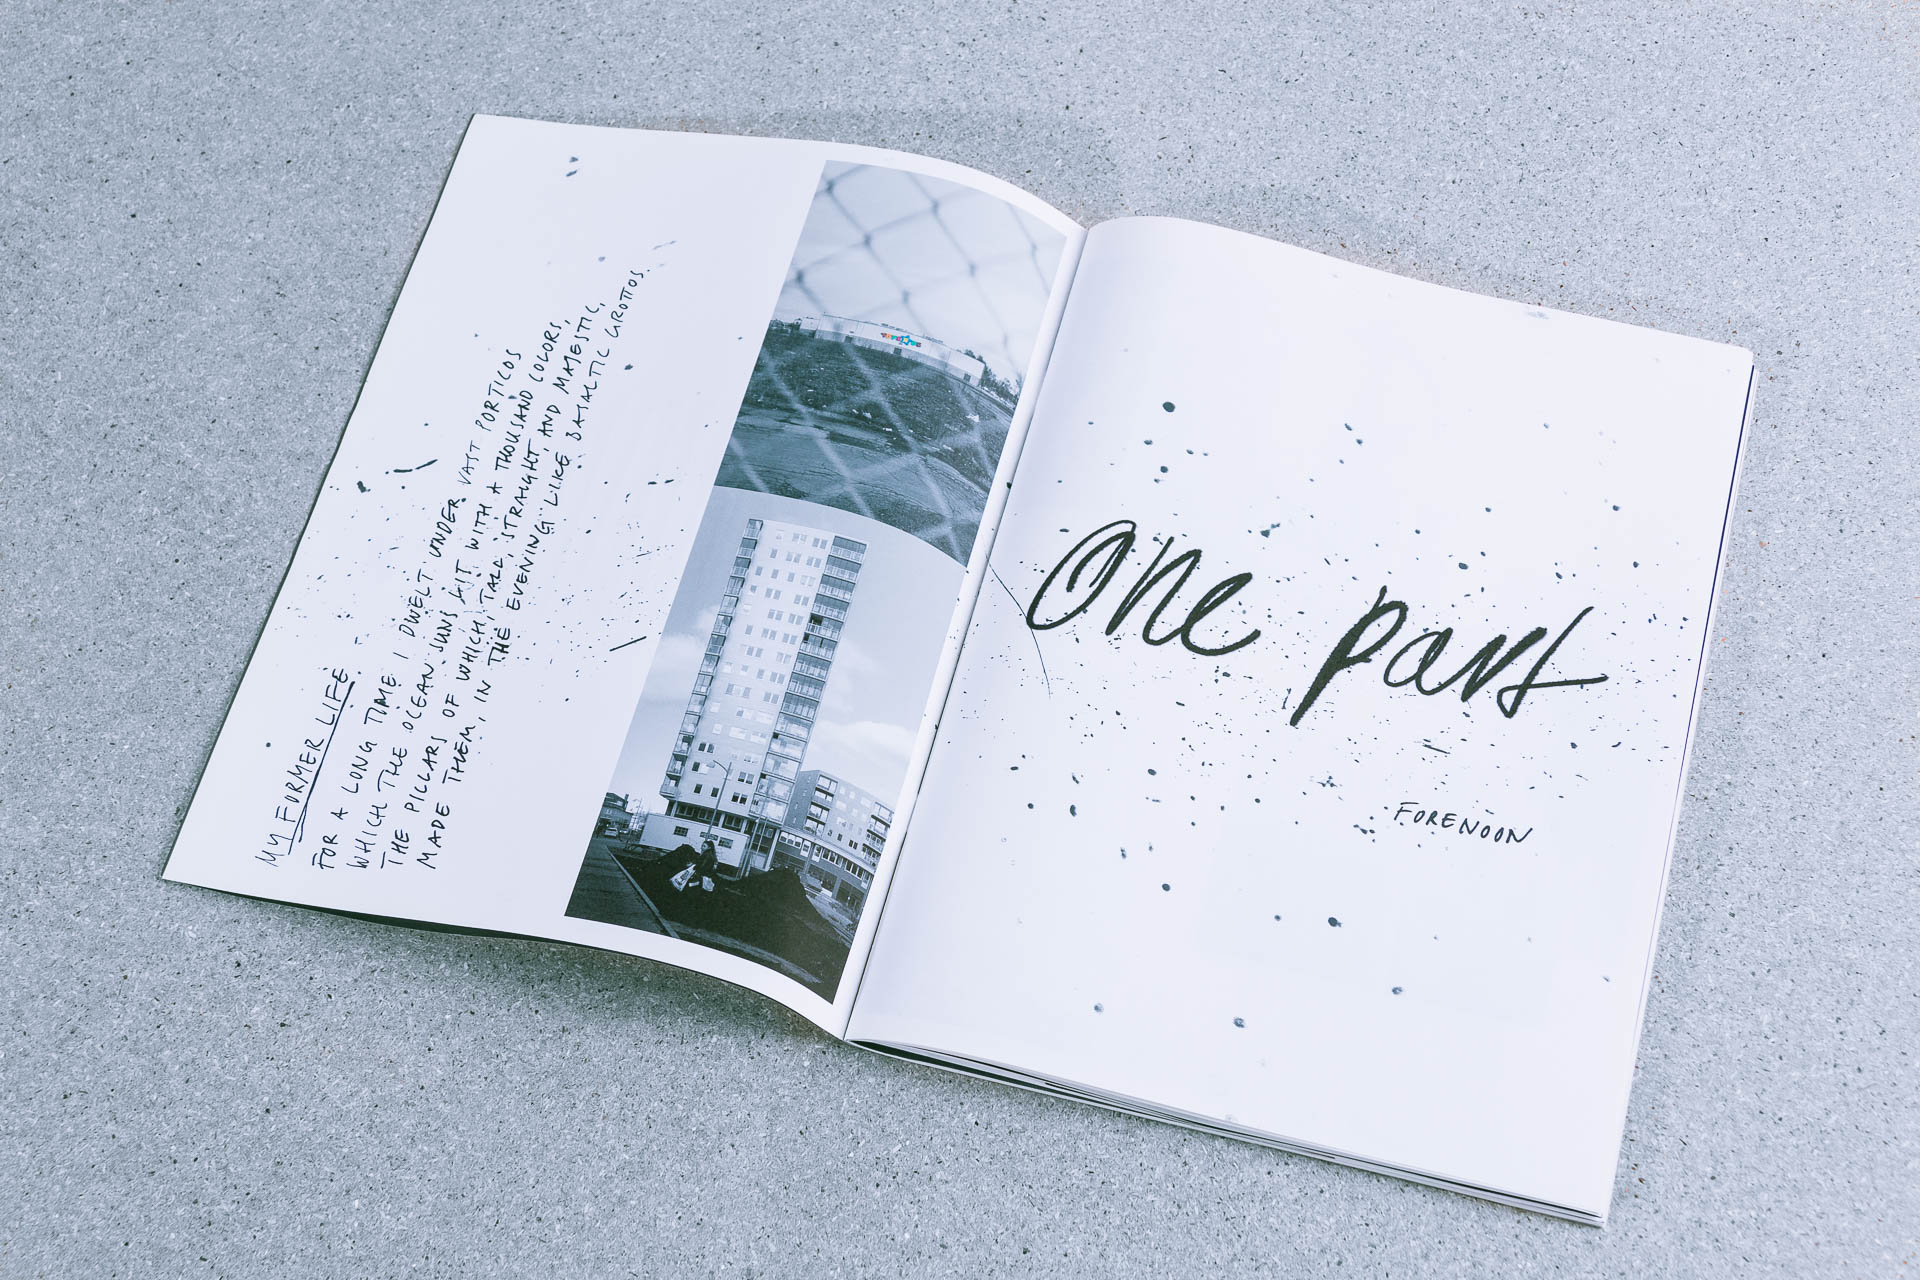 MY FORMER LIFE
FOR A LONG TIME I DWELT UNDER VAST PORTICOS
WHICH THE OCEAN SUNS LIT WITH A THOUSAND COLORS,
THE PILLARS OF WHICH, TALL, STRAIGHT, AND MAJESTIC,
MADE THEM, IN THE EVENING LIKE BASALTIC GROTTOS.
One part
FORENOON